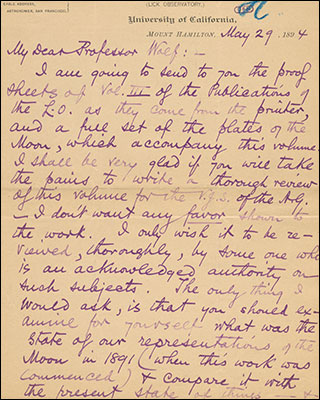 CABLE ADDRESS,
ASTRONOMER, SAN FRANCISCO.
(LICK OBSERVATORY)
University of California,
MOUNT HAMILTON, May 29. 1894
My Dear Professor :—
I am going to send to you the proof
sheets of Vol. III of the Publications of
the L.O. as they come from the printer
and a full set of the plates of the
Moon, which accompany this volume.
I shall be very glad if you will take
the pains to write a thorough review
of this volume for the V.J.S. of the A.G.
— I dont want any favor shown to
the work. I only wish it to be re-
viewed, thoroughly, by some one who
is an acknowledged authority on
such subjects. The only thing I
would ask, is that you should ex-
amine for yourself what was the
State of our representations of the
Moon in 1891 (when this work was
commenced) & compare it with
the present state of things —